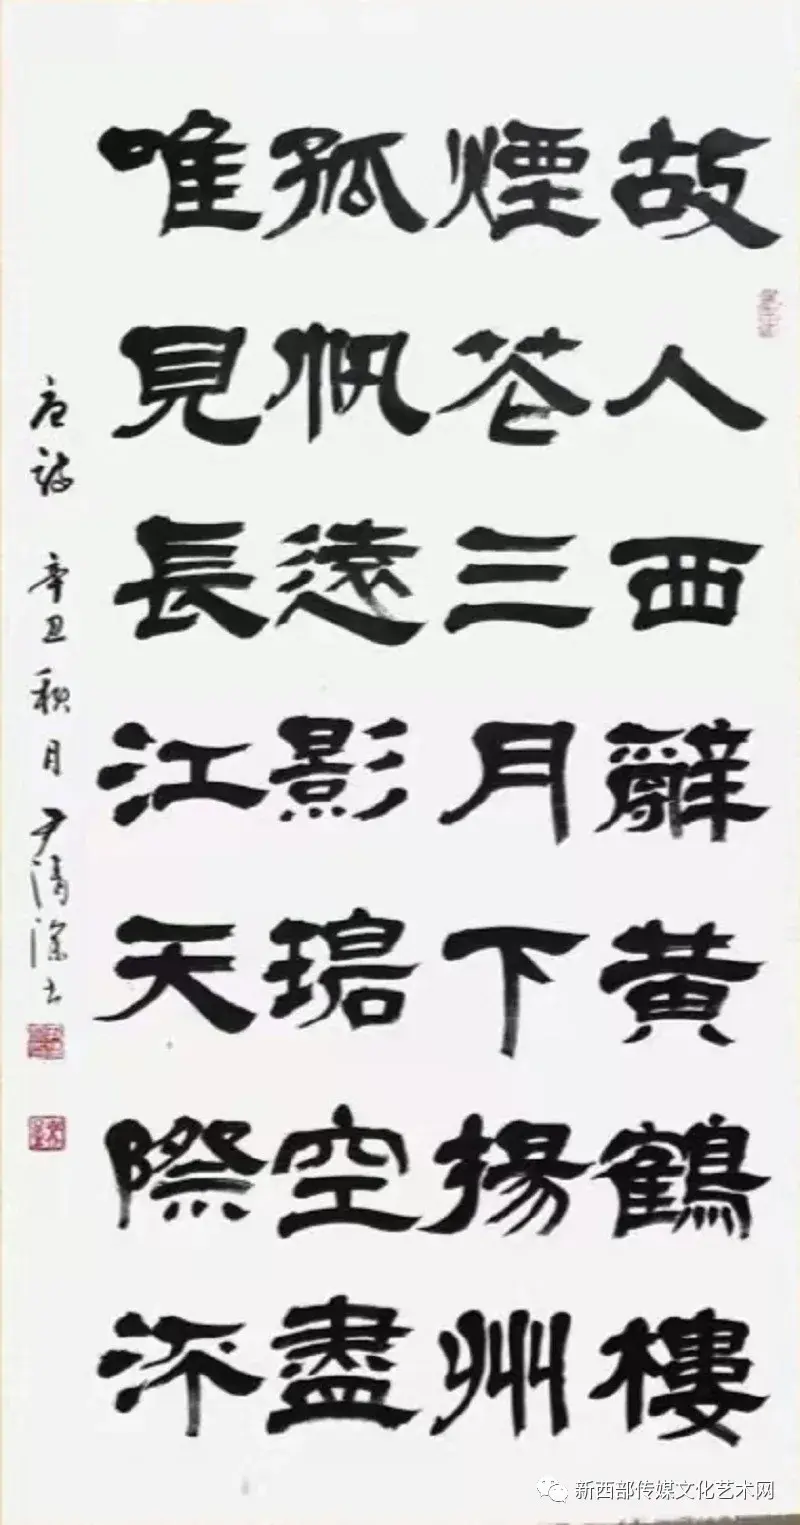 故人西辭黄鶴樓
煙花三月下揚州
孤帆遠影碧空盡
唯見長江天際流
唐詩 辛丑秋月 尹清深书
新西部传媒文化艺术网